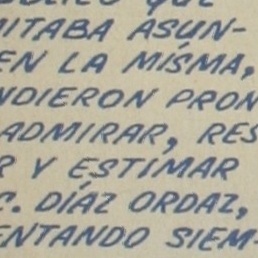 QUE
MITABA ASUN-
EN LA MISMA,
NDIERON PRON
ADMIRAR, RES
R Y ESTIMAR
C. DÍAZ ORDAZ,
ENTANDO SIEM-